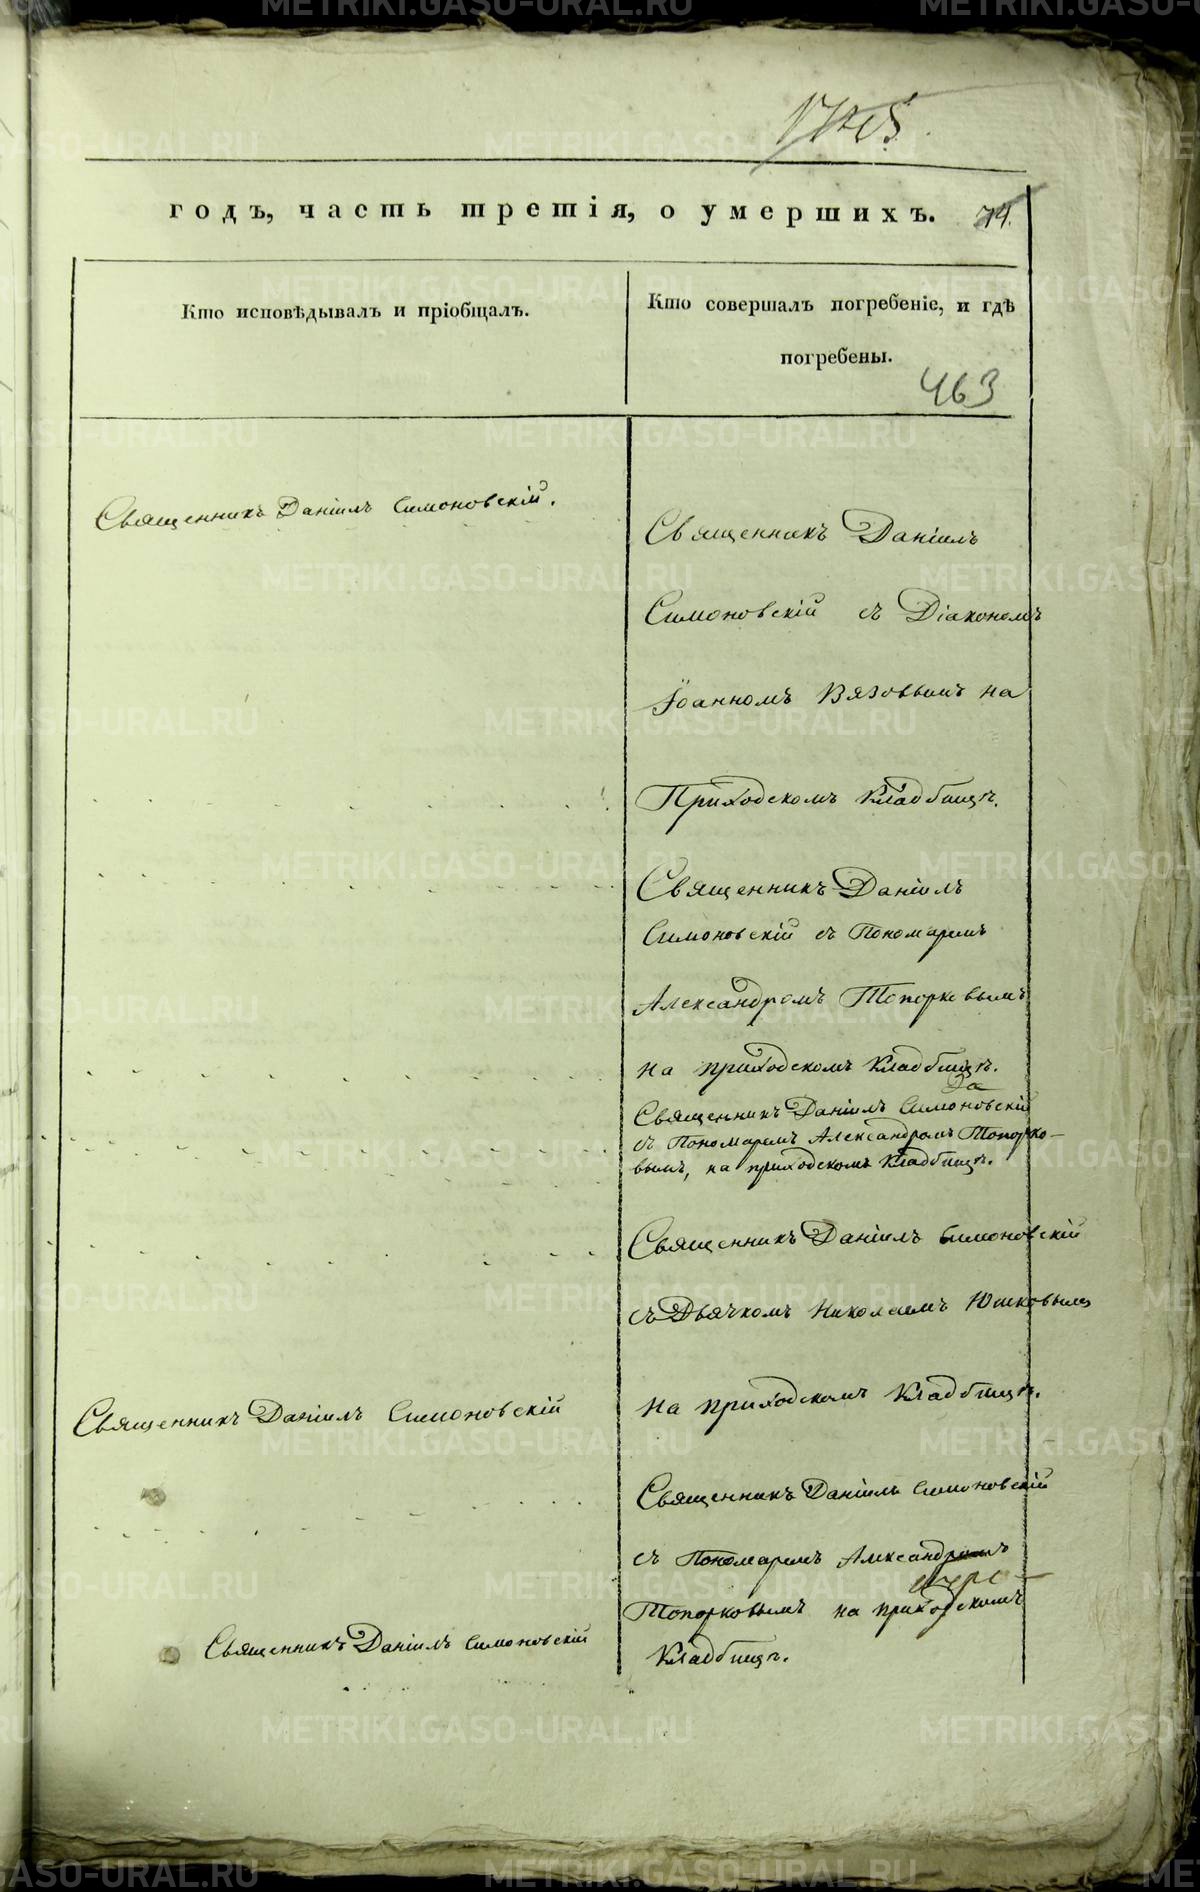 годъ, часть третія, о умершихъ. 74.
Кто исповѣдывалъ и пріобщалъ.
Кто совершалъ погребеніе, и гдѣ
погребены.
463
Священникъ Даніилъ Симоновскій.
Священникъ Даніилъ
Симоновскій съ Діакономъ
Іоанномъ Вязовымъ на
Приходскомъ кладбищѣ.
Священникъ Даніилъ
Симоновскій съ Пономаремъ
Александромъ Топорковымъ
на приходскомъ кладбищѣ.
Священникъ Даніилъ Симоновскій
съ Пономаремъ Александромъ Топорко-
вымъ, на приходскомъ кладбищѣ.
Священникъ Даніилъ Симоновскій
съ Дьячкомъ Николаемъ Юшковымъ
на приходскомъ кладбищѣ.
Священникъ Даніилъ Симоновскій
Священникъ Даніилъ Симоновскій
съ Пономаремъ Александромъ
Топорковымъ на приходскомъ
кладбищѣ.
Священникъ Даніилъ Симоновскій
METRIKI.GASO-URAL.RU